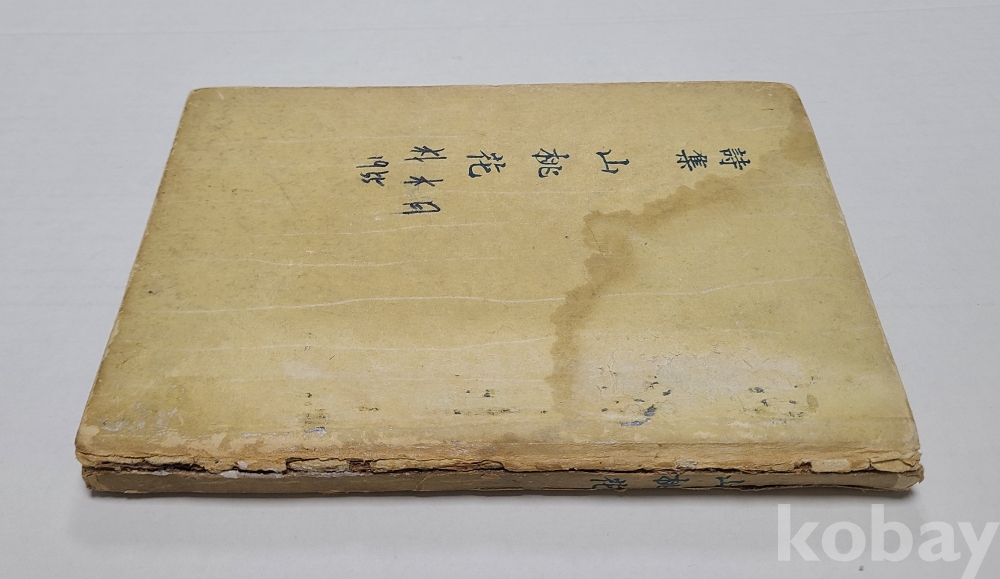 詩集
山桃花
朴木月
1955
山桃花
kobay